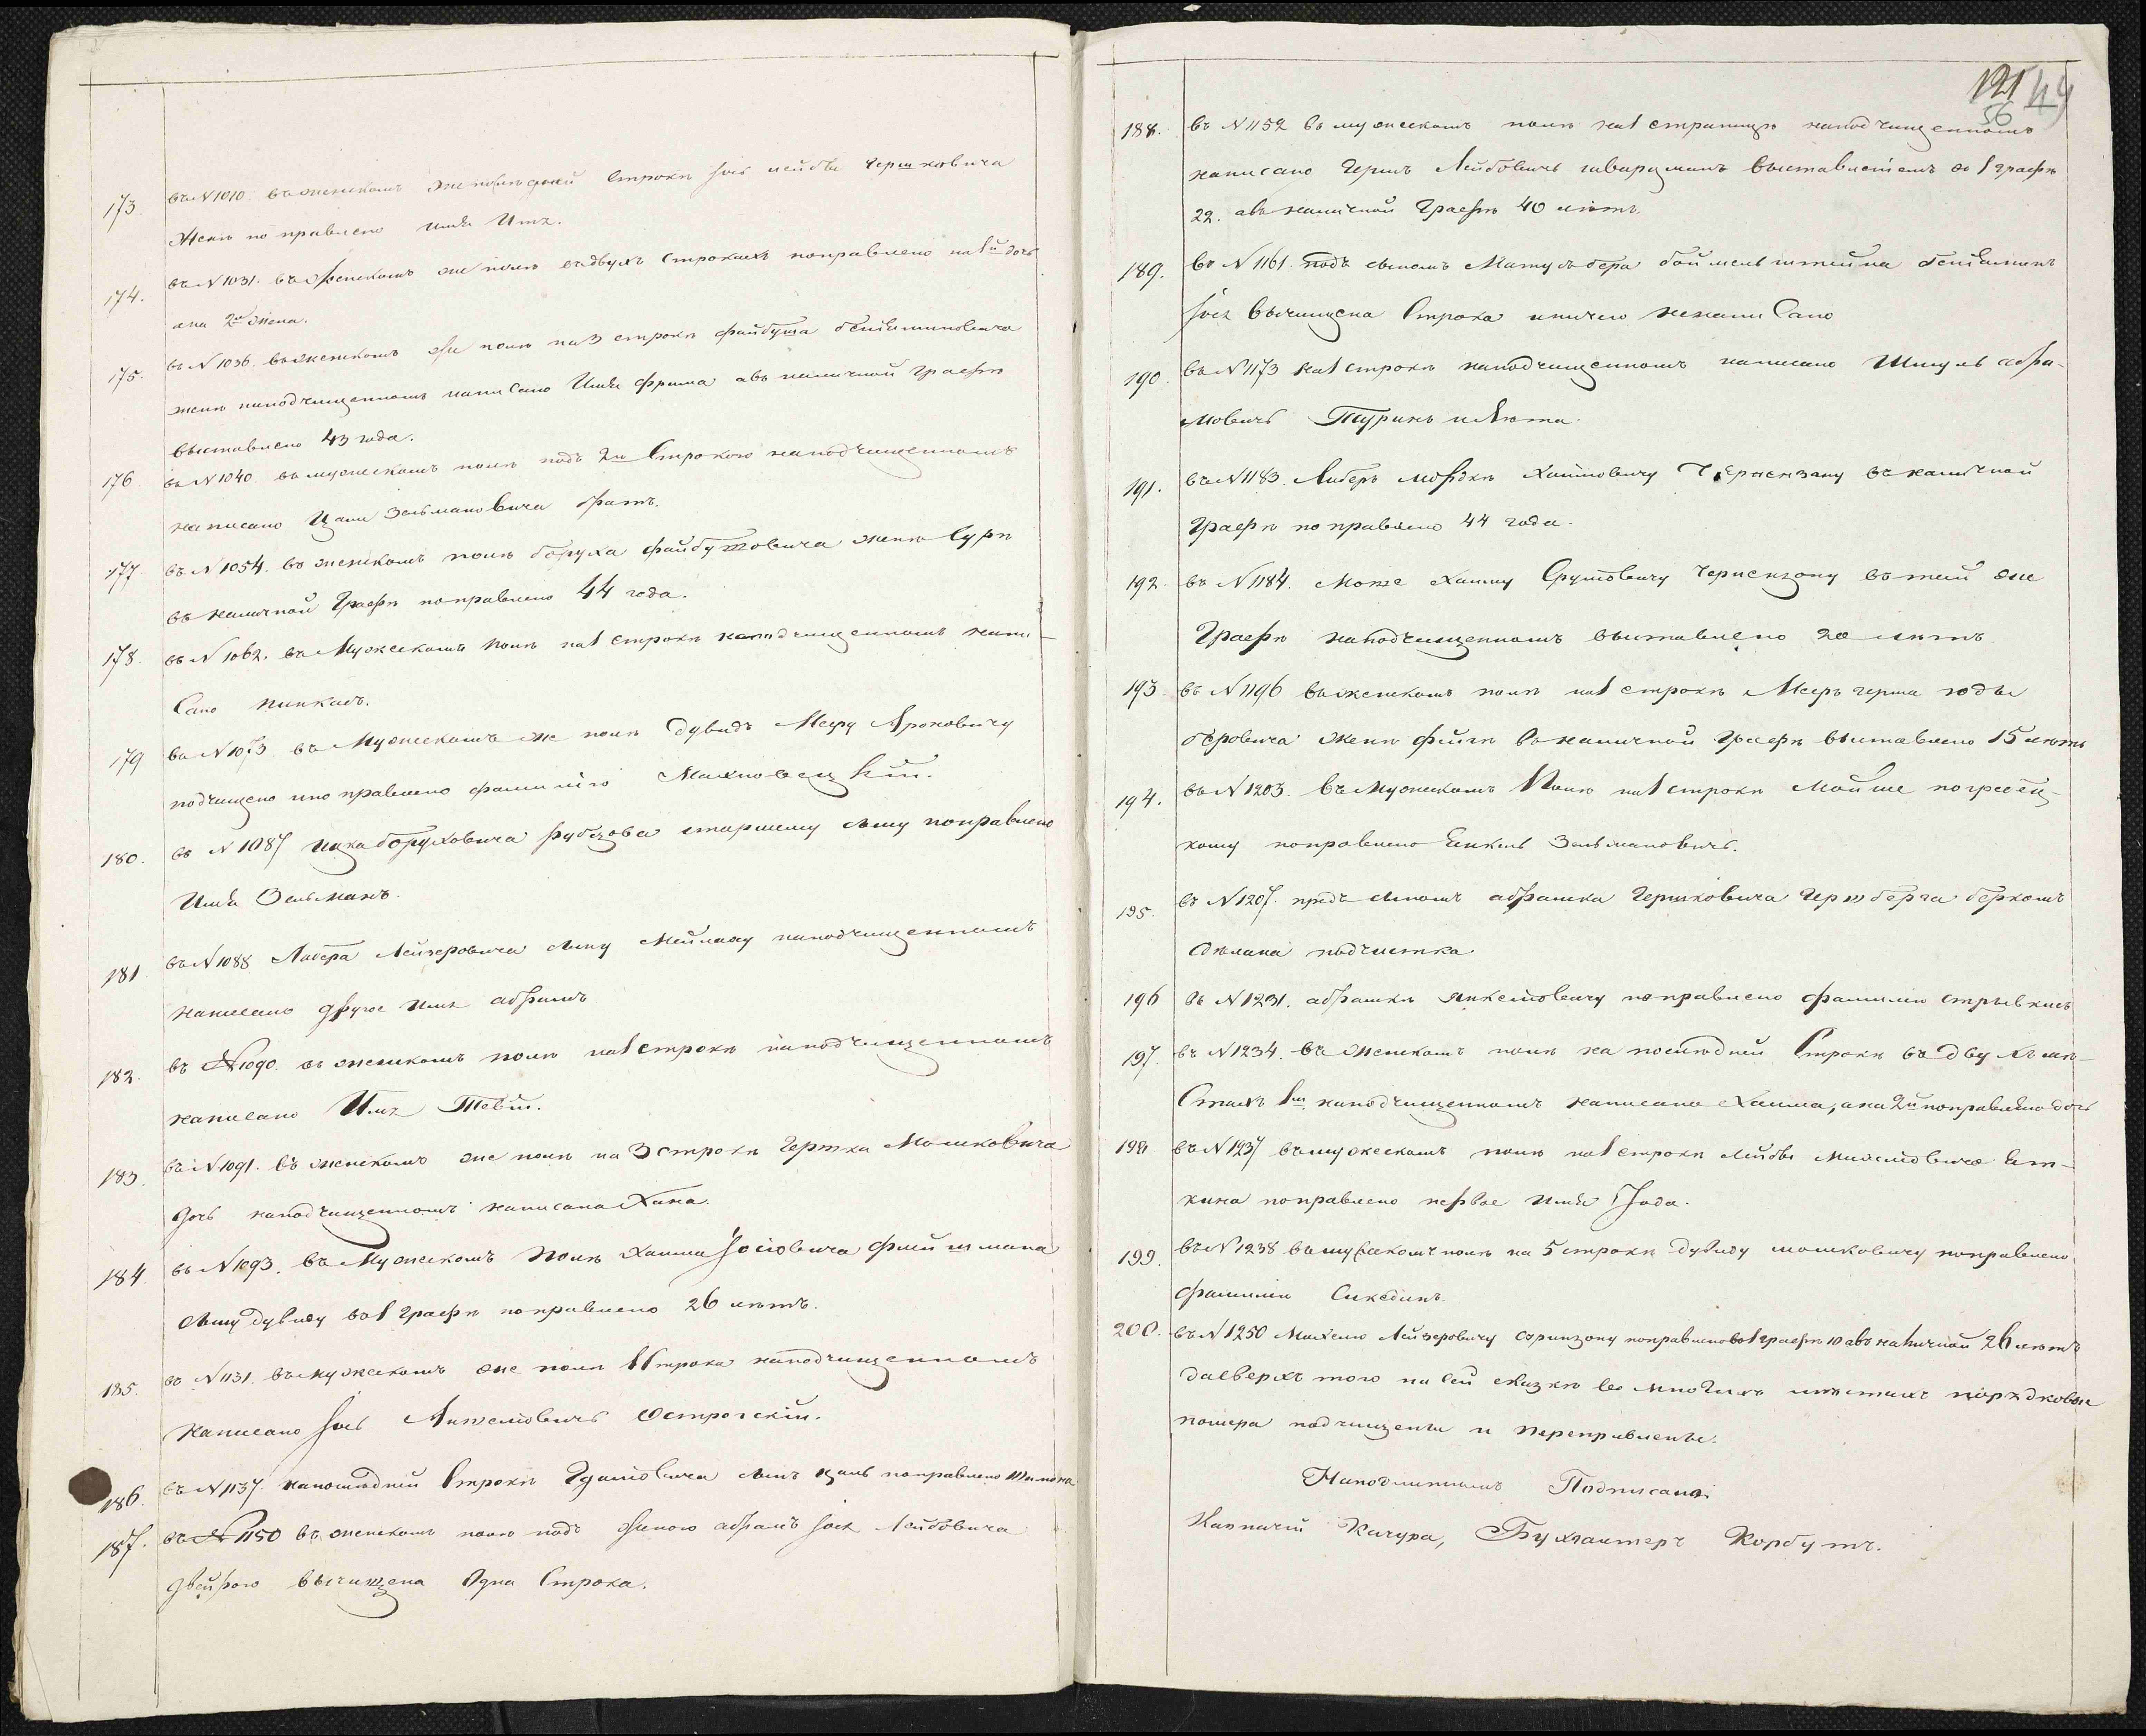 173. въ N 1010. въ женскомъ же послѣдней строкѣ Іосъ Лейбы Гершковича
женѣ поправлено имя Итъ.
174. въ N 1031. въ женскомъ же полѣ въ двухъ строкахъ поправлено на 1й дочь
а на 2й жена.
175. въ N 1036. въ женскомъ же полѣ на 3 строкѣ Файбуша Беніаминовича
женѣ наподчищенномъ написано имя Фрима а въ наличной графѣ
выставлено 43 года.
176. въ N 1040 въ мужескомъ полѣ подъ 2ю строкою наподчищенномъ
написано Зельмановича братъ.
177. въ N 1054. въ женскомъ полѣ Боруха Файбушовича женѣ Сурѣ
въ наличной графѣ поправлено 44 года.
178. въ N 1062. въ мужескомъ полѣ на 1 строкѣ наподчищенномъ напи-
сано Пинкасъ.
179 въ N 1073 въ мужескомъ же полѣ Дувидъ Мееру Ароновичу
подчищено и поправлено фамилію
180. въ N 1087 Ицка Боруховича Рубцова старшему сыну поправлено
имя Зельманъ.
181. въ N 1088 Либера Лейзеровича сыну наподчищенномъ
написано другое имя Абрамъ
182. въ N 1090. въ женскомъ полѣ на 1 строкѣ наподчищенномъ
написано имя
183. въ N 1091. въ женскомъ же полѣ на 3 строкѣ Гершка Мошковича
дочь наподчищенномъ написана Хана.
184. въ N 1093. въ мужескомъ полѣ Хаима Іосіовича Флейшмана
сыну Дувиду въ 1 графѣ поправлено 26 лѣтъ.
185. въ N 1131. въ мужескомъ же полѣ 1 строка наподчищенномъ
написано Іось Анкелювичъ Острогскій.
186. въ N 1137. на послѣдней строкѣ сынъ поправлено
187. въ N 1150 въ женскомъ полѣ подъ женою Абрамъ Іося Лейбовича
Двейрою вычищена одна строка.
121
56
49
188. въ N 1152 въ мужескомъ полѣ на 1 страницѣ наподчищенномъ
написано Гершъ Лейбовичъ Шварцманъ въ 1 графѣ
22. а въ наличной графѣ 40 лѣтъ.
189. въ N 1161. подъ сыномъ Боймельштейна Беніаминъ
Іосъ вычищена строка и ничего не написано
190. въ N 1173 на 1 строкѣ наподчищенномъ написано Шмуль Абра-
мовичъ Туринъ и лѣта.
191. въ N 1183. Либеръ Мордкѣ Хаимовичу въ наличной
графѣ поправлено 44 года.
192. въ N 1184. Хаиму Срулювичу въ той же
графѣ наподчищенномъ выставлено 20 лѣтъ
193. въ N 1196 въ женскомъ полѣ на 1 строкѣ Мееръ Герша
Беровича женѣ Фейгѣ въ наличной графѣ выставлено 15 лѣтъ
194. въ N 1203. въ мужескомъ полѣ на 1 строкѣ Мойше Погребец-
кому поправлено Енкель Зельмановичъ.
195. въ N 1207. предъ сыномъ Абрамка Гершковича Гершберга Беркомъ
сдѣлана подчистка
196 въ N 1231. Абрамкѣ Янкелювичу поправлено фамилію
197. въ N 1234. въ женскомъ полѣ на послѣдней строкѣ въ двухъ мѣ-
стахъ 1мъ наподчищенномъ написано Хаима, а на 2й поправлено дочь
198 въ N 1237 въ мужескомъ полѣ на 1 строкѣ Лейбы
поправлено первое имя Юда.
199. въ N 1238 въ мужескомъ полѣ на 5 строкѣ Дувиду Мошковичу поправлено
фамиліи
200. въ N 1250 Михелю Лейзеровичу поправлено въ 1 графѣ 10 а въ наличной 26 лѣтъ
да сверхъ того на сей сказкѣ во многихъ мѣстахъ порядковые
номера подчищены и переправлены.
На подлинномъ подписано:
Казначей Качура, Бухгалтеръ Корбутъ.